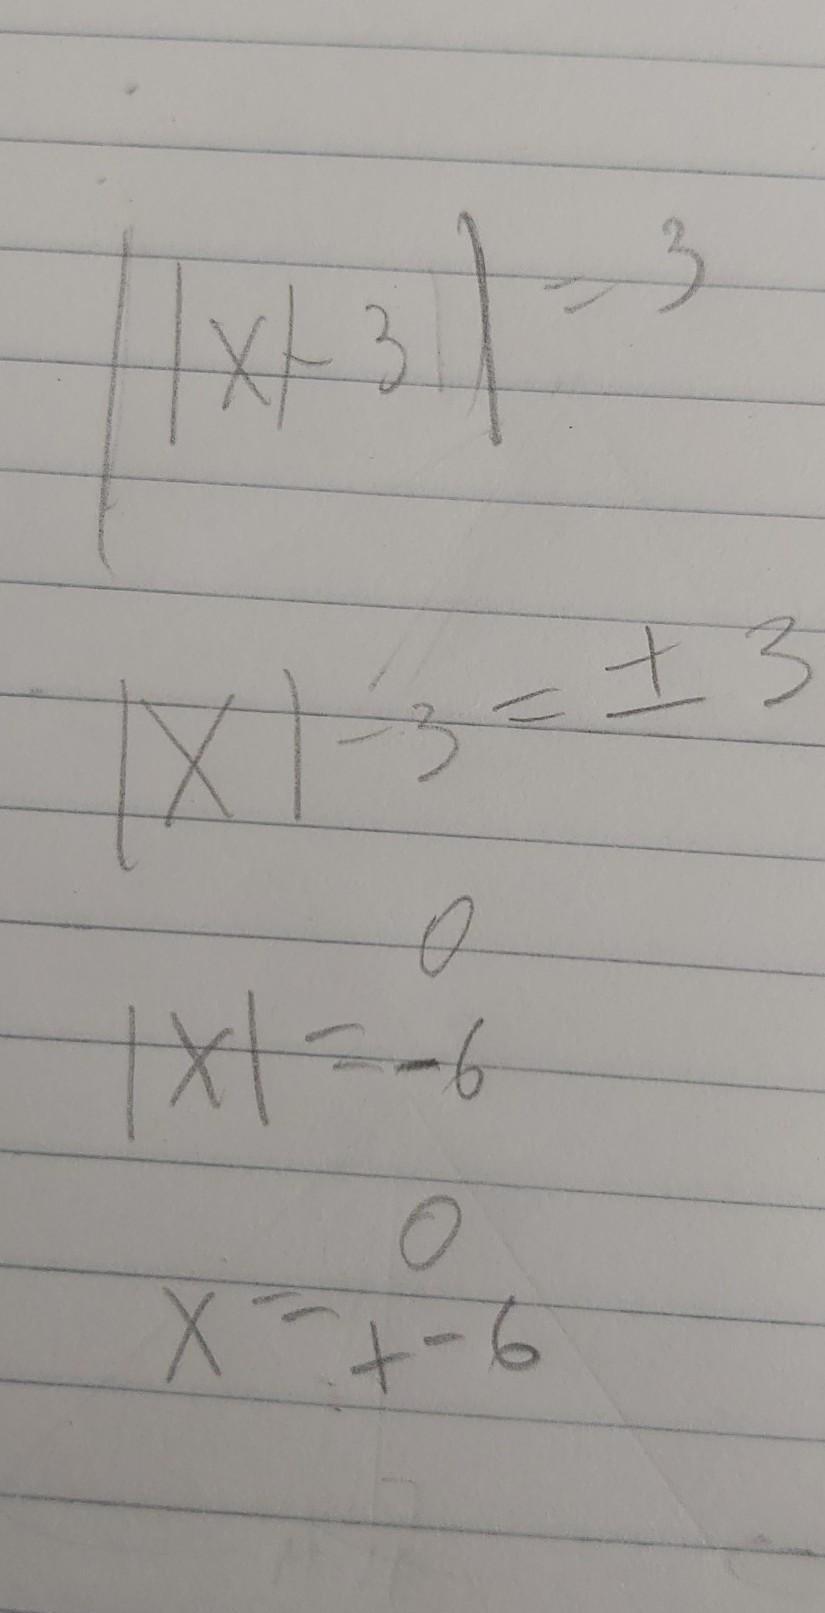 ||x|-3| = 3
|x| - 3 = ± 3
0
|x| = -6
0
x = + - 6